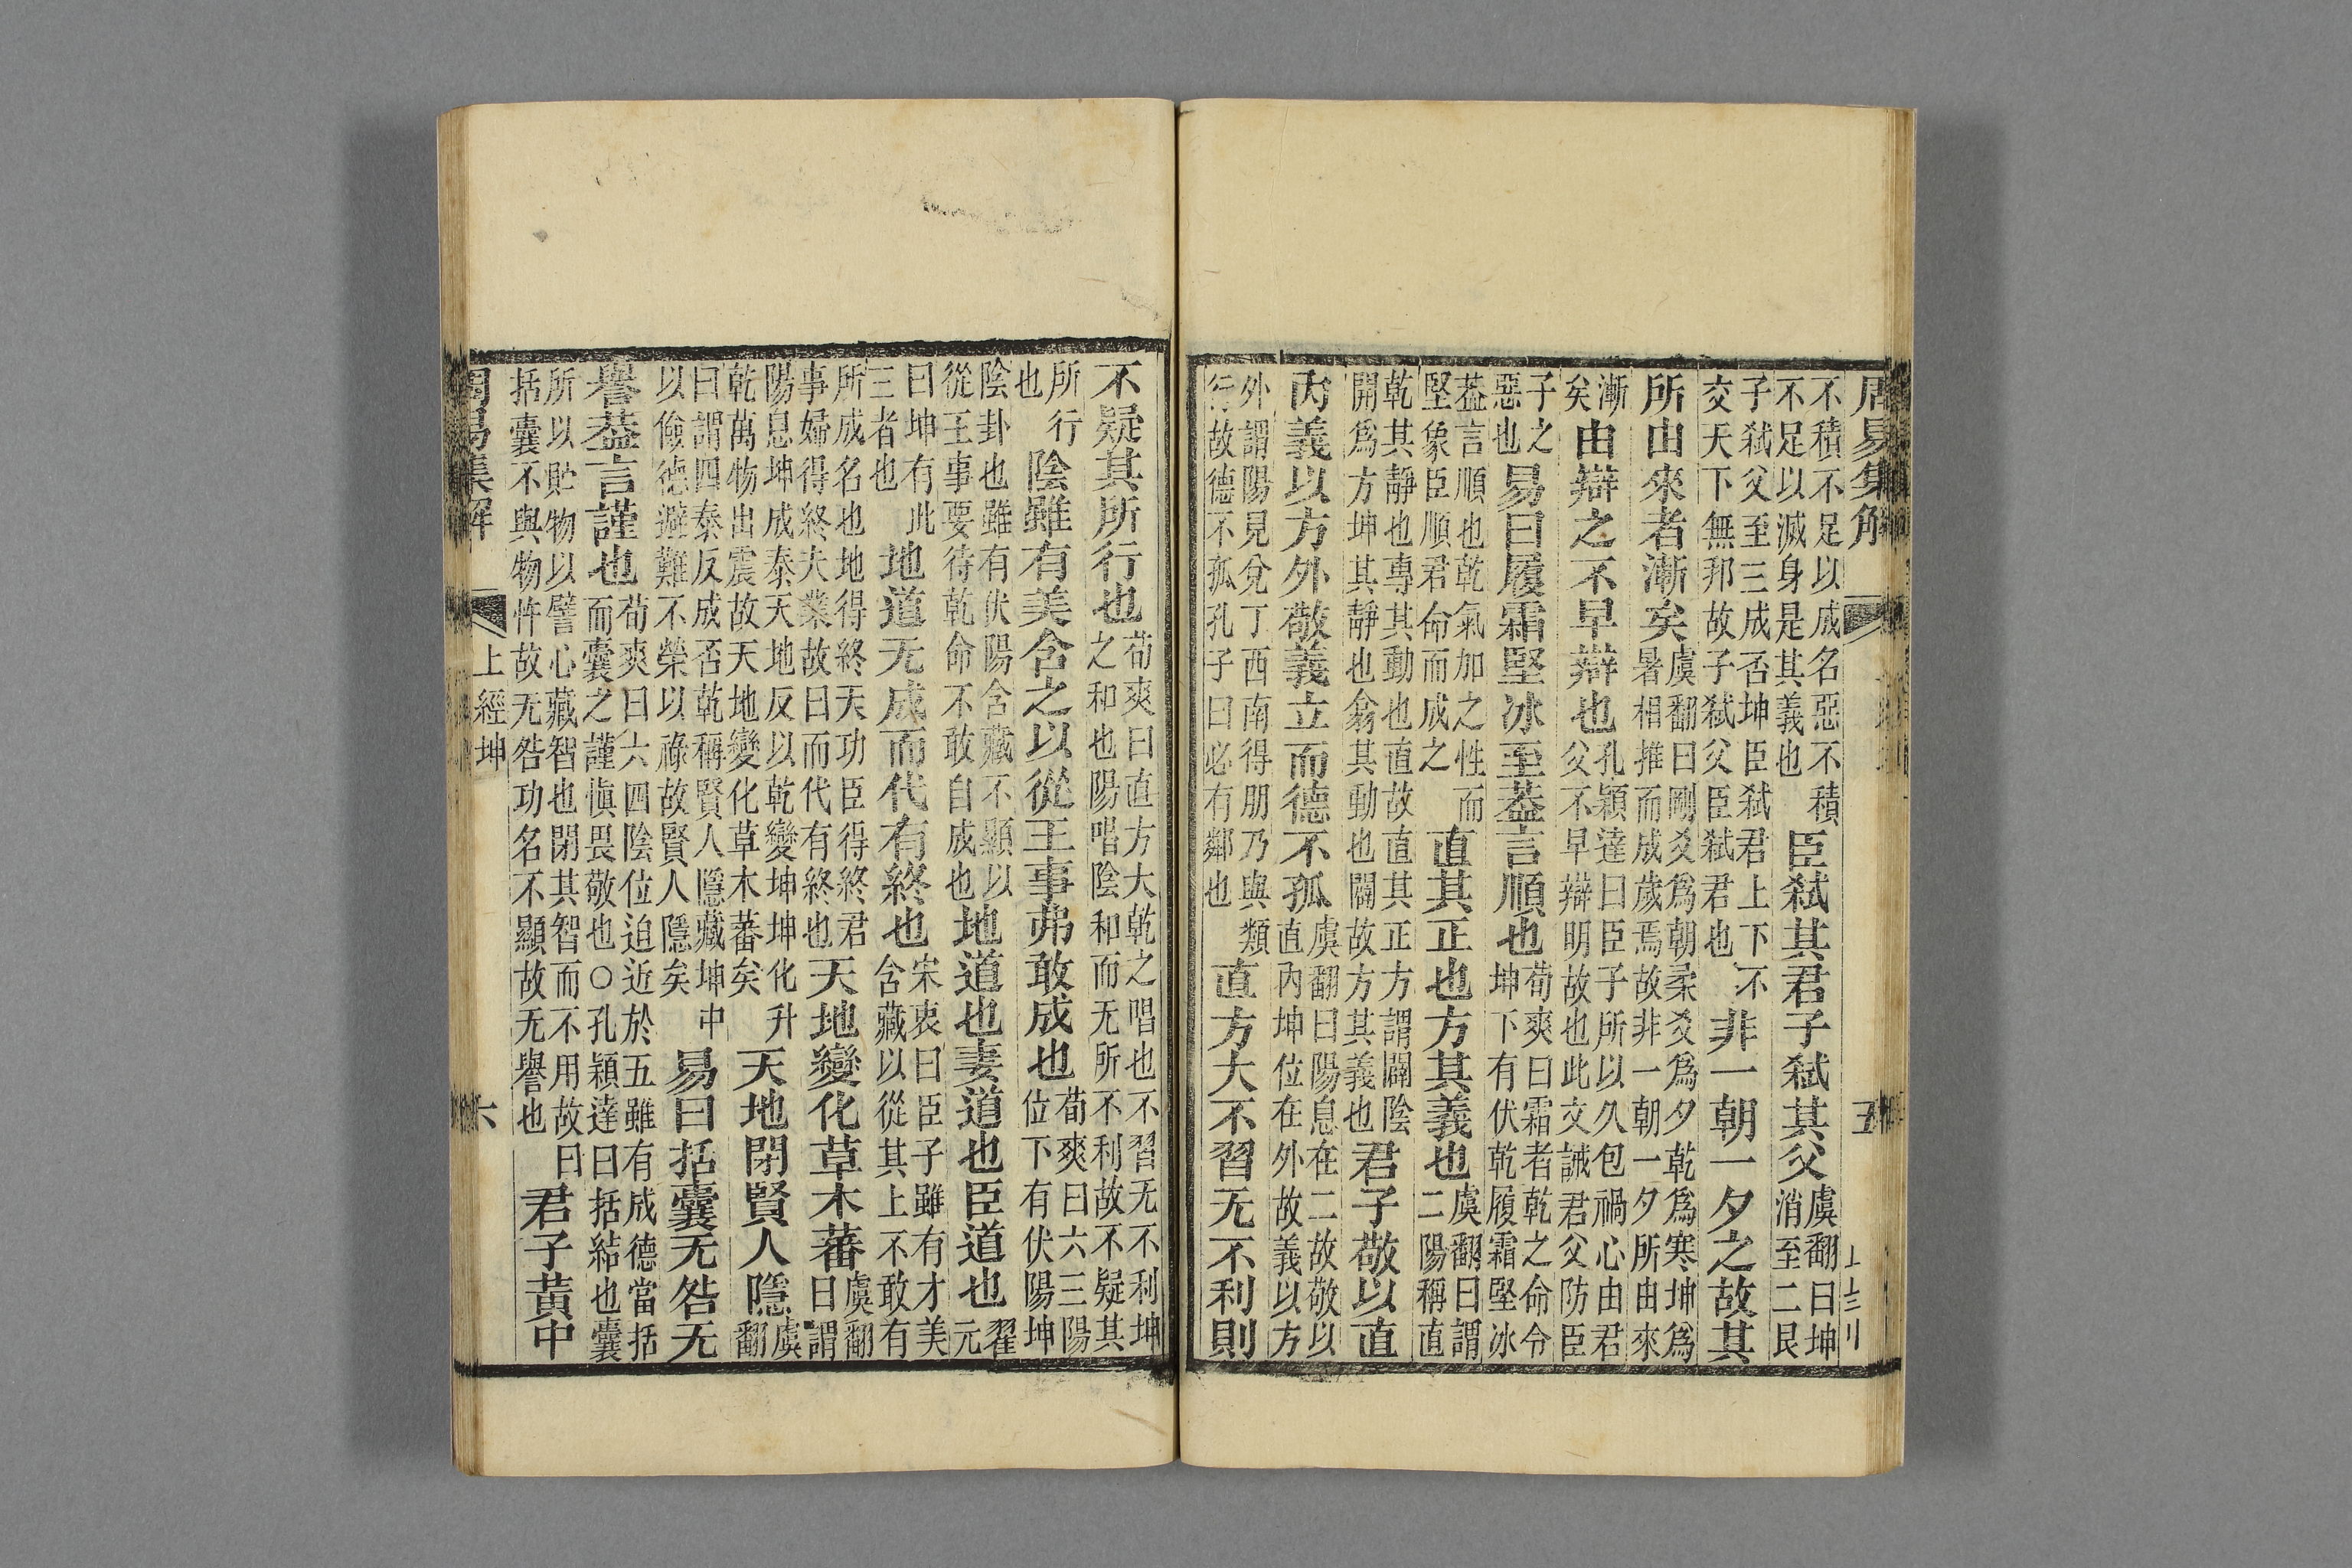 周易集解 五
不積不足以成名惡不積不足以滅身是其義也臣弒其君子弒其父虞翻曰坤消至二艮
子弒父至三成否坤臣弒君上下不交天下無邦故子弒父臣弒君也非一朝一夕之故其
所由來者漸矣虞翻曰剛爻爲朝柔爻爲夕乾爲寒坤爲暑相推而成歲焉故非一朝一夕所由來
漸矣由辯之不早辯也孔穎達曰臣子所以久包禍心由君父不早辯明故也此文誡君父防臣
子之惡也易曰履霜堅冰至葢言順也荀爽曰霜者乾之命令坤下有伏乾履霜堅冰
葢言順也乾氣加之性而堅象臣順君命而成之直其正也方其義也虞翻曰謂二陽稱直
乾其靜也專其動也直故直其正方謂闢陰開爲方坤其靜也翕其動也闢故方其義也君子敬以直
內義以方外敬義立而德不孤虞翻曰陽息在二故敬以直內坤位在外故義以方
外謂陽見兌丁西南得朋乃與類行故德不孤孔子曰必有鄰也直方大不習无不利則
不疑其所行也荀爽曰直方大乾之唱也不習无不利坤之和也陽唱陰和而无所不利故不疑其
所行也陰雖有美含之以從王事弗敢成也荀爽曰六三陽位下有伏陽坤
陰卦也雖有伏陽含藏不顯以從王事要待乾命不敢自成也地道也妻道也臣道也翟元
曰坤有此三者也地道无成而代有終也宋衷曰臣子雖有才美含藏以從其上不敢有
所成名也地得終天功臣得終君事婦得終夫業故曰而代有終也天地變化草木蕃虞翻曰謂
陽息坤成泰天地反以乾變坤坤化升乾萬物出震故天地變化草木蕃矣天地閉賢人隱虞翻
曰謂四泰反成否乾稱賢人隱藏坤中以儉德避難不榮以祿故賢人隱矣易曰括囊无咎无
譽葢言謹也荀爽曰六四陰位迫近於五雖有成德當括而囊之謹愼畏敬也○孔穎達曰括結也囊
所以貯物以譬心藏智也閉其智而不用故曰括囊不與物忤故无咎功名不顯故无譽也君子黃中
周易集解 上經 坤 六